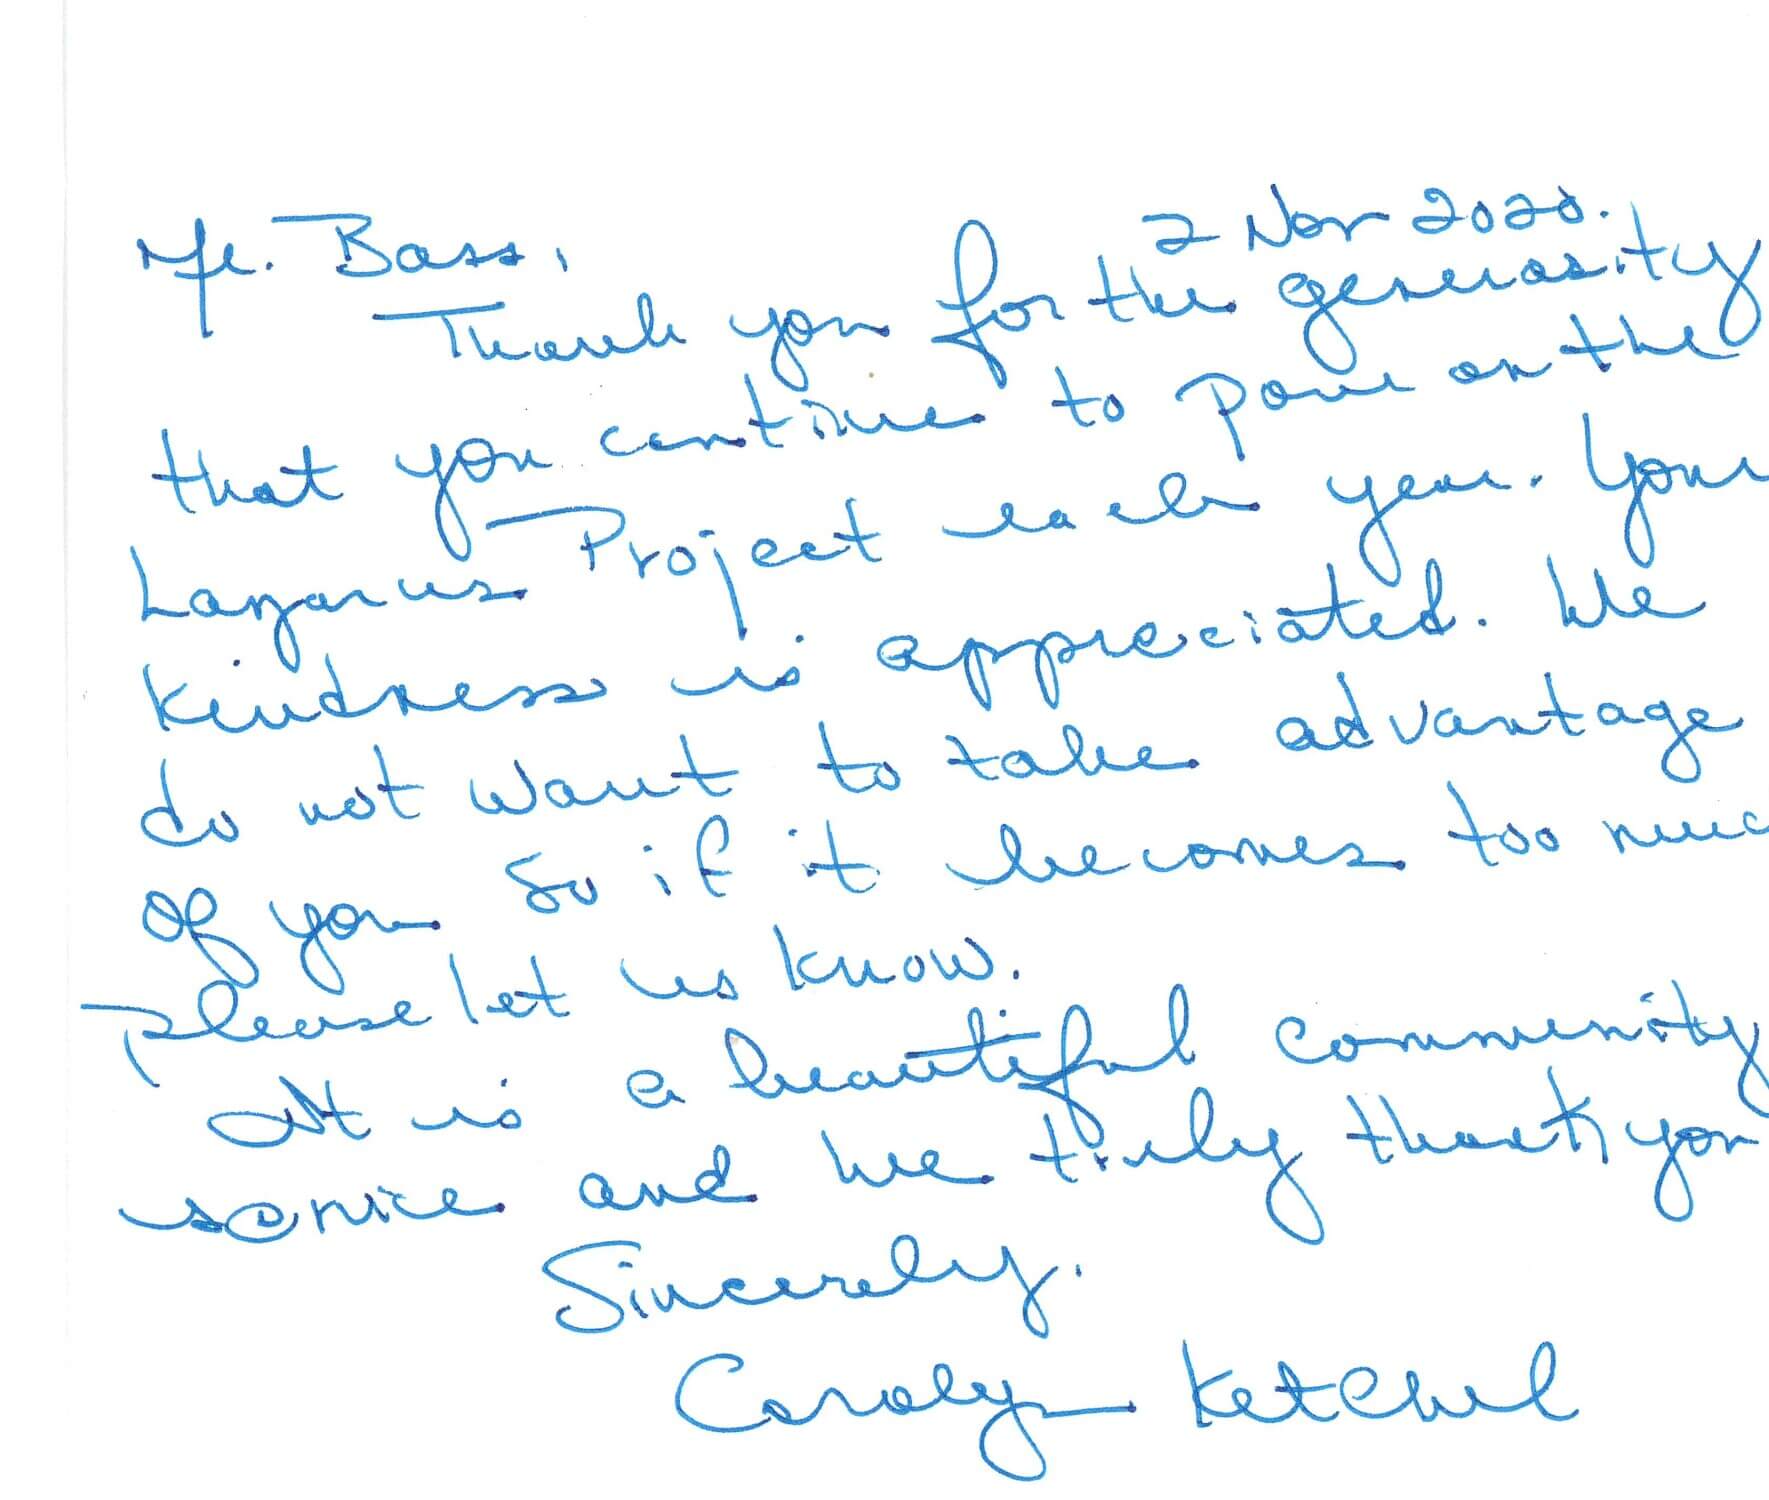 2 Nov 2020.
Mr. Bass,
Thank you for the generosity
that you continue to pour on the
Lazarus Project each year. Your
kindness is appreciated. We
do not want to take advantage
of you so if it becomes too muc
please let us know.
It is a beautiful community
service and we truly thank you
Sincerely.
Carolyn Ketchel